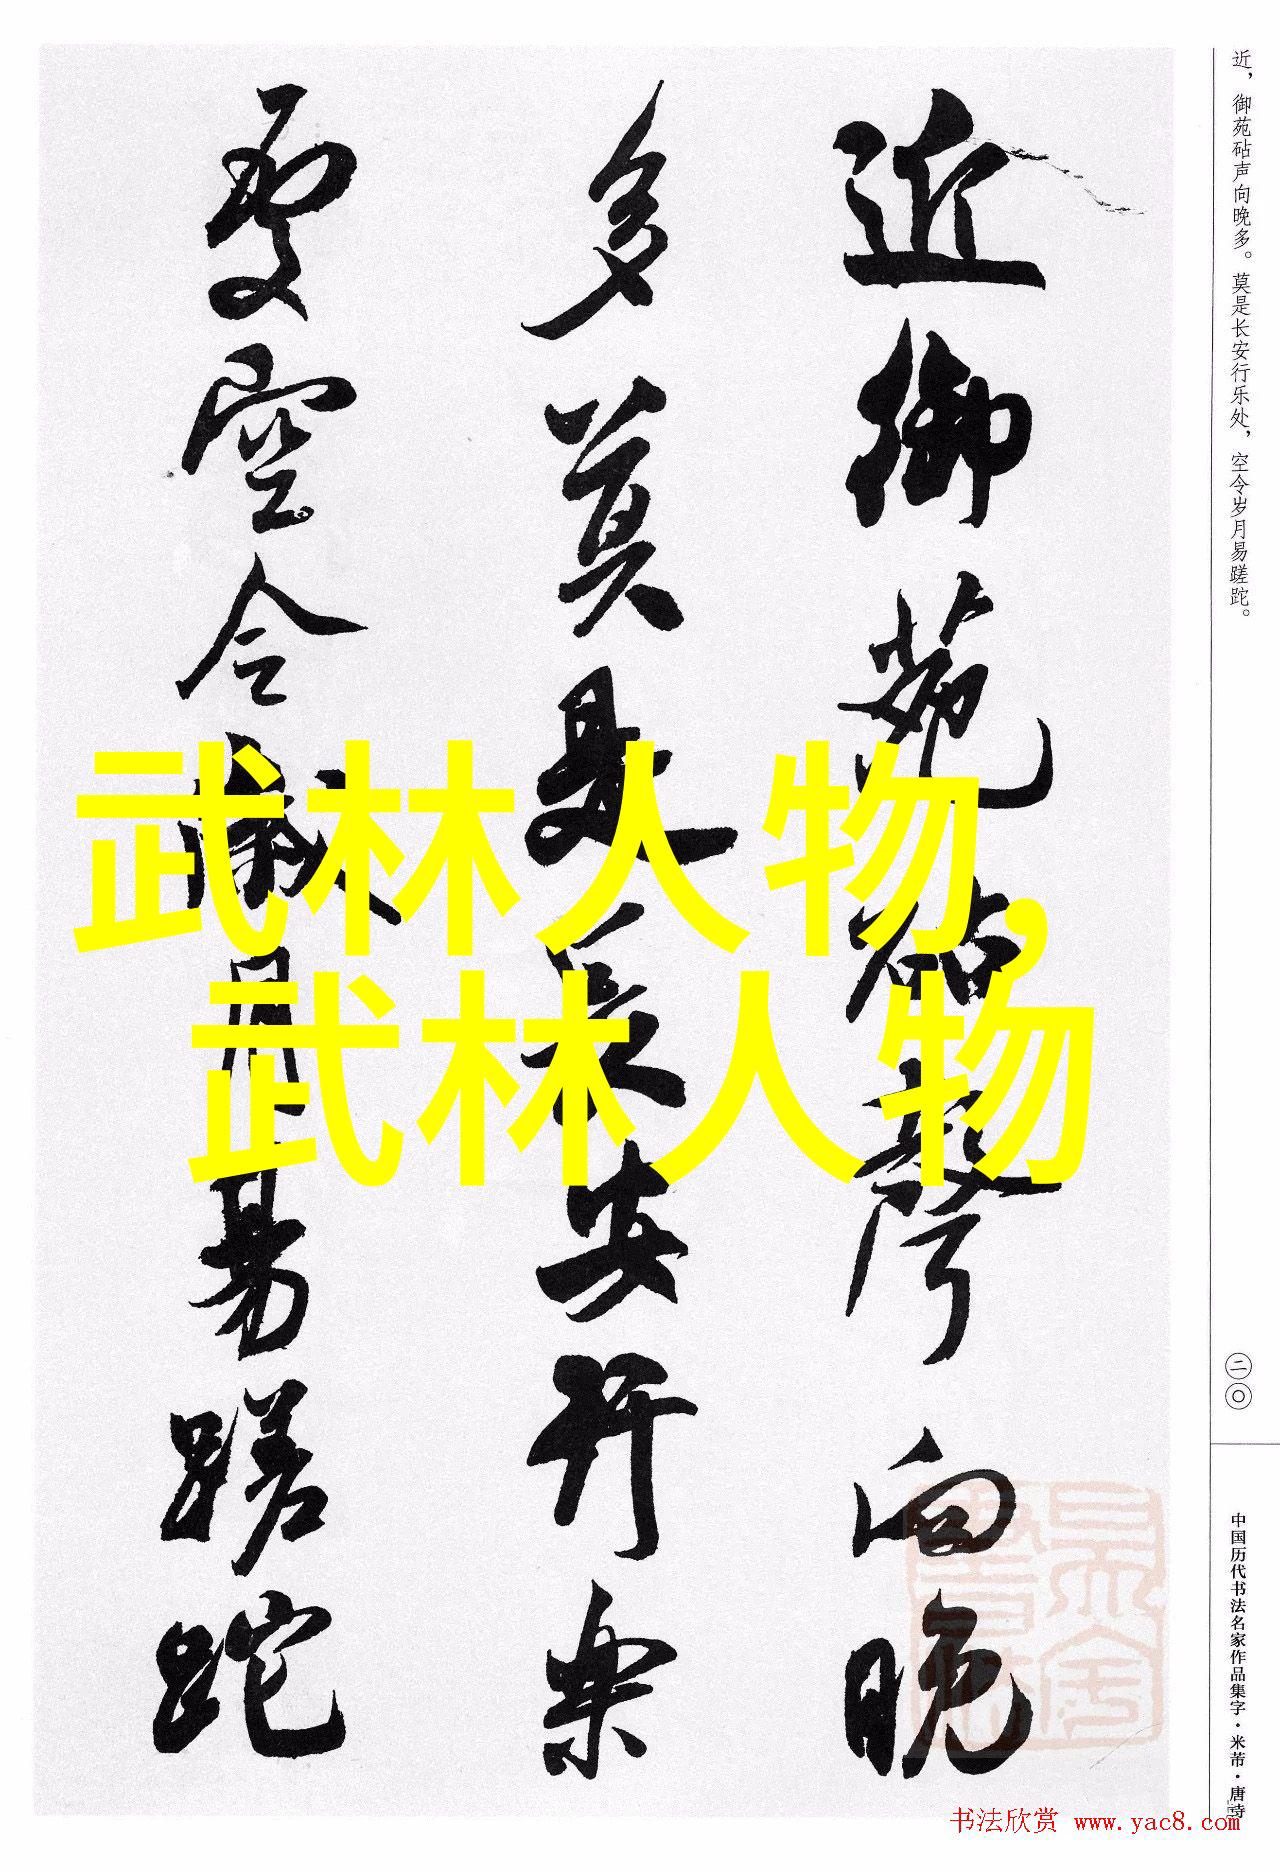 近，御苑砧声向晚多。莫是长安行乐处，空令岁月易蹉跎。
近御苑砧聲向晚
多莫是長安行樂
處空令歲月易蹉跎
武林人物，
武林人物
二〇
中国历代书法名家作品集字·米芾·唐诗
书法欣赏 www.yac8.com